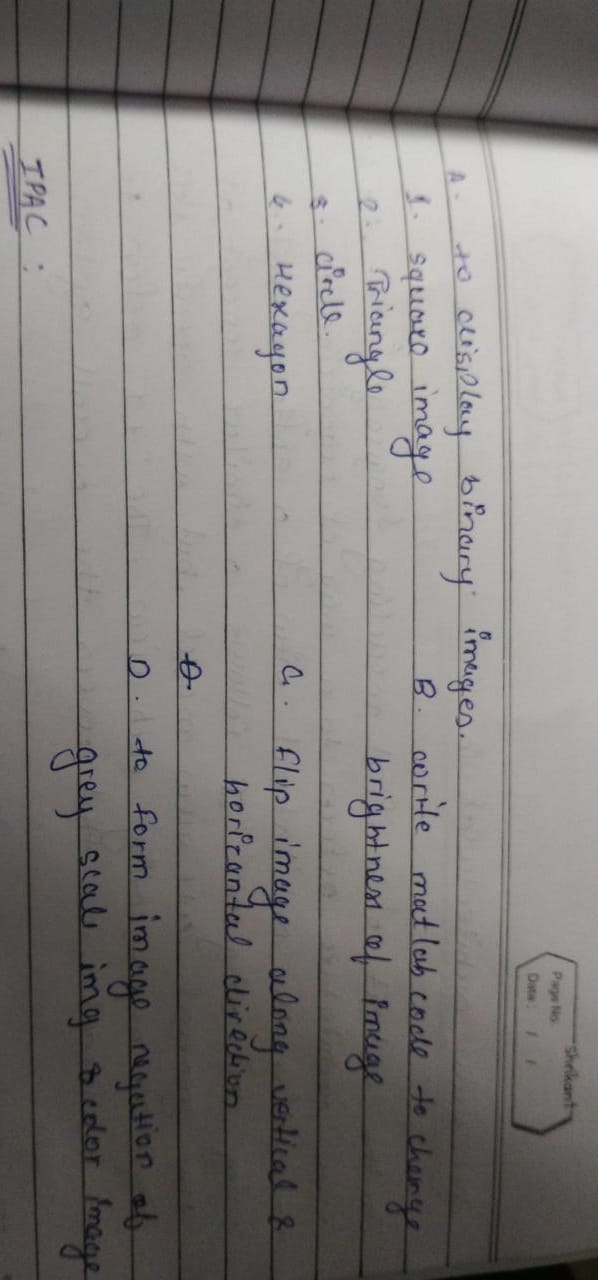 Shrikant
Page No.
Date: / /
A. to display binary images.
1. square image
2. Triangle
3. circle.
4. Hexagon
B. write matlab code to change
brightness of image
C. flip image along vertical &
horizontal direction
D. to form image negation of
grey scale img & color image
IPAC :